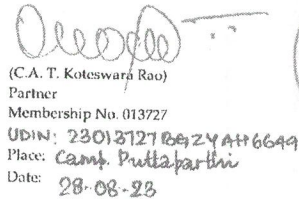 (C.A. T. Koteswara Rao)
Partner
Membership No. 013727
UDIN: 23013727BGZYAH6649
Place: Camp. Puttaparthi
Date: 28-08-23